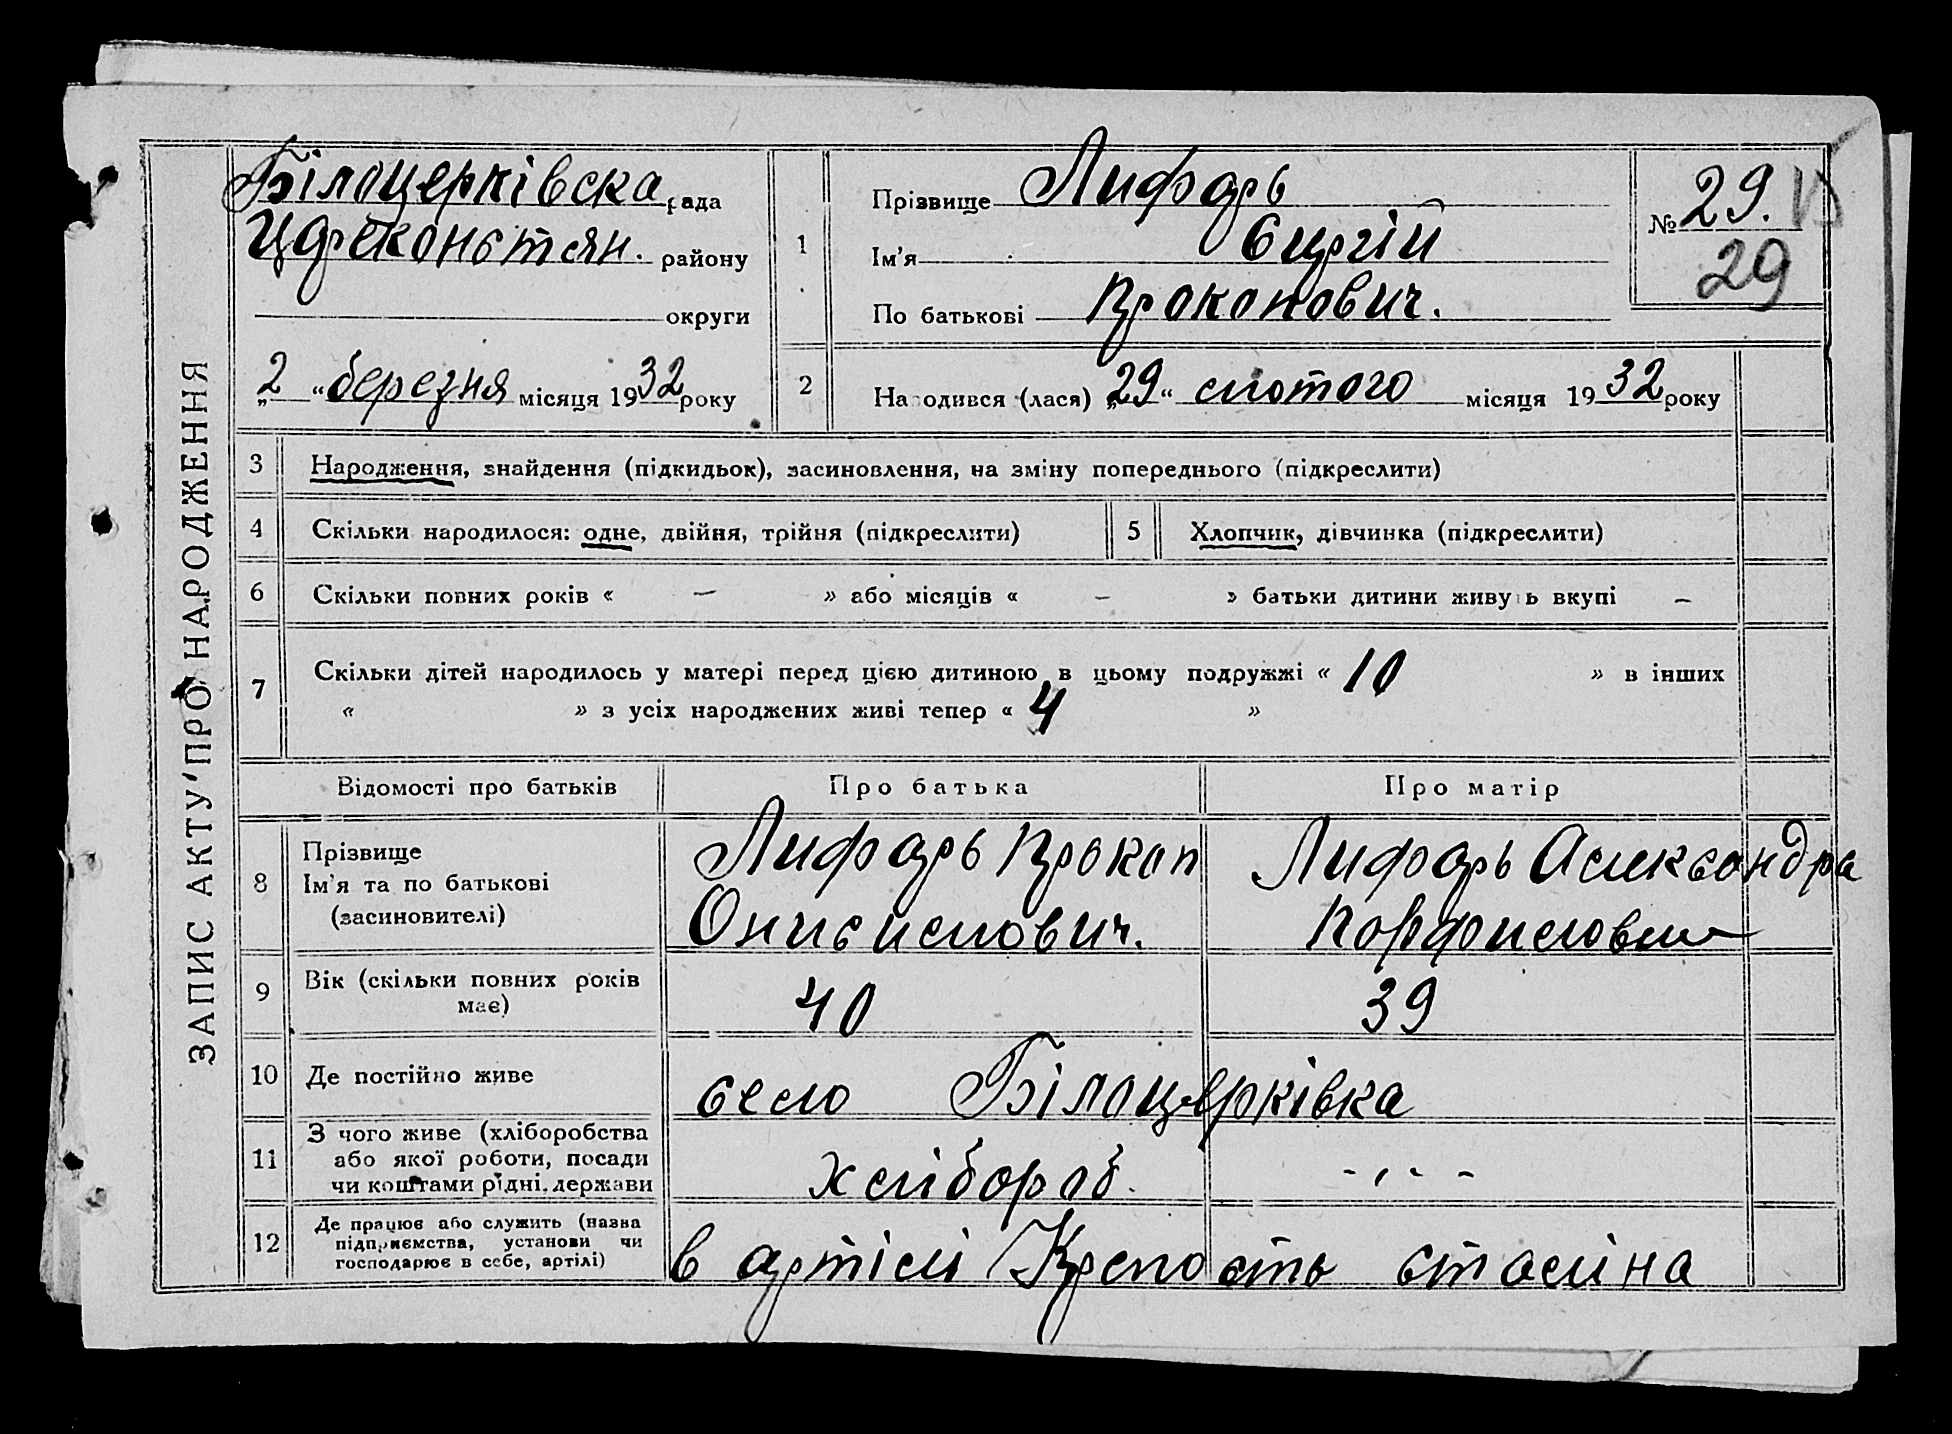 ЗАПИС АКТУ ПРО НАРОДЖЕННЯ
Білоцерківска рада
Цареконстян. району
округи
„2“ березня місяця 1932 року
1
Прізвище Лифарь
Ім'я Сиргій
По батькові Прокопович.
№ 29.
29
2
Народився (лася) „29“ лютого місяця 1932 року
3 Народження, знайдення (підкидьок), засиновлення, на зміну попереднього (підкреслити)
4 Скільки народилося: одне, двійня, трійня (підкреслити) 5 Хлопчик, дівчинка (підкреслити)
6 Скільки повних років « – » або місяців « – » батьки дитини живуть вкупі –
7 Скільки дітей народилось у матері перед цією дитиною в цьому подружжі « 10 » в інших
« » з усіх народжених живі тепер « 4 »
Відомості про батьків Про батька Про матір
8 Прізвище
Ім'я та по батькові
(засиновителі)
Лифарь Прокоп
Онисимович.
Лифарь Александра
9 Вік (скільки повних років
має)
40 39
10 Де постійно живе село Білоцерківка
11 З чого живе (хліборобства
або якої роботи, посади
чи коштами рідні, держави
хлібороб. - ,, - -
12 Де працює або служить (назва
підприємства, установи чи
господарює в себе, артілі)
в артілі Крепость сталіна